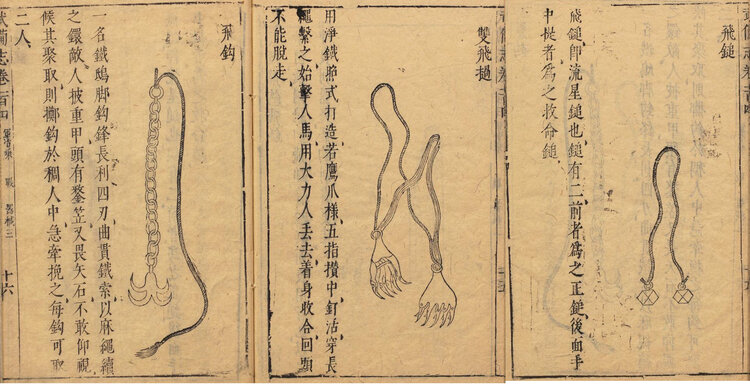 飛鎚
飛鎚即流星鎚也鎚有二前者爲之正鎚後面手
中提者爲之救命鎚
雙飛撾
用淨鐵照式打造若鷹爪樣五指攢中釘活穿長
繩繫之始擊人馬用大力人丟去着身收合回頭
不能脫走
飛鈎
一名鐵鴟脚鈎鋒長利四刃曲貫鐵索以麻繩續
之鐶敵人披重甲頭有鍪笠又畏矢石不敢仰視
候其聚取則擲鈎於稠人中急牽挽之每鈎可取
二人
武備志卷一百四 戰 器械三 十六